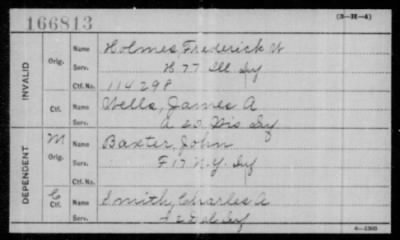 166813 (3-H-4)
INVALID
Orig. Name Holmes, Frederick W
Serv. H 77 Ill Inf
Ctf. No. 114298
Ctf. Name Wells, James A
Serv. A 20 Wis Inf
DEPENDENT
M Orig. Name Baxter, John
Serv. F 17 N.Y. Inf
Ctf. No.
C Ctf. Name Smith, Charles A
Serv. Inf